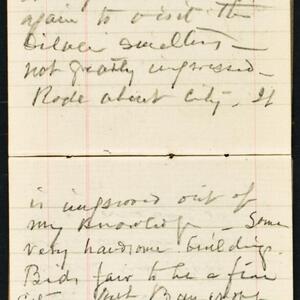 again to visit the
Silver smelters —
not greatly impressed —
Rode about city. It
is improved out of
my knowledge — Some
very handsome buildings.
Bids fair to be a fine